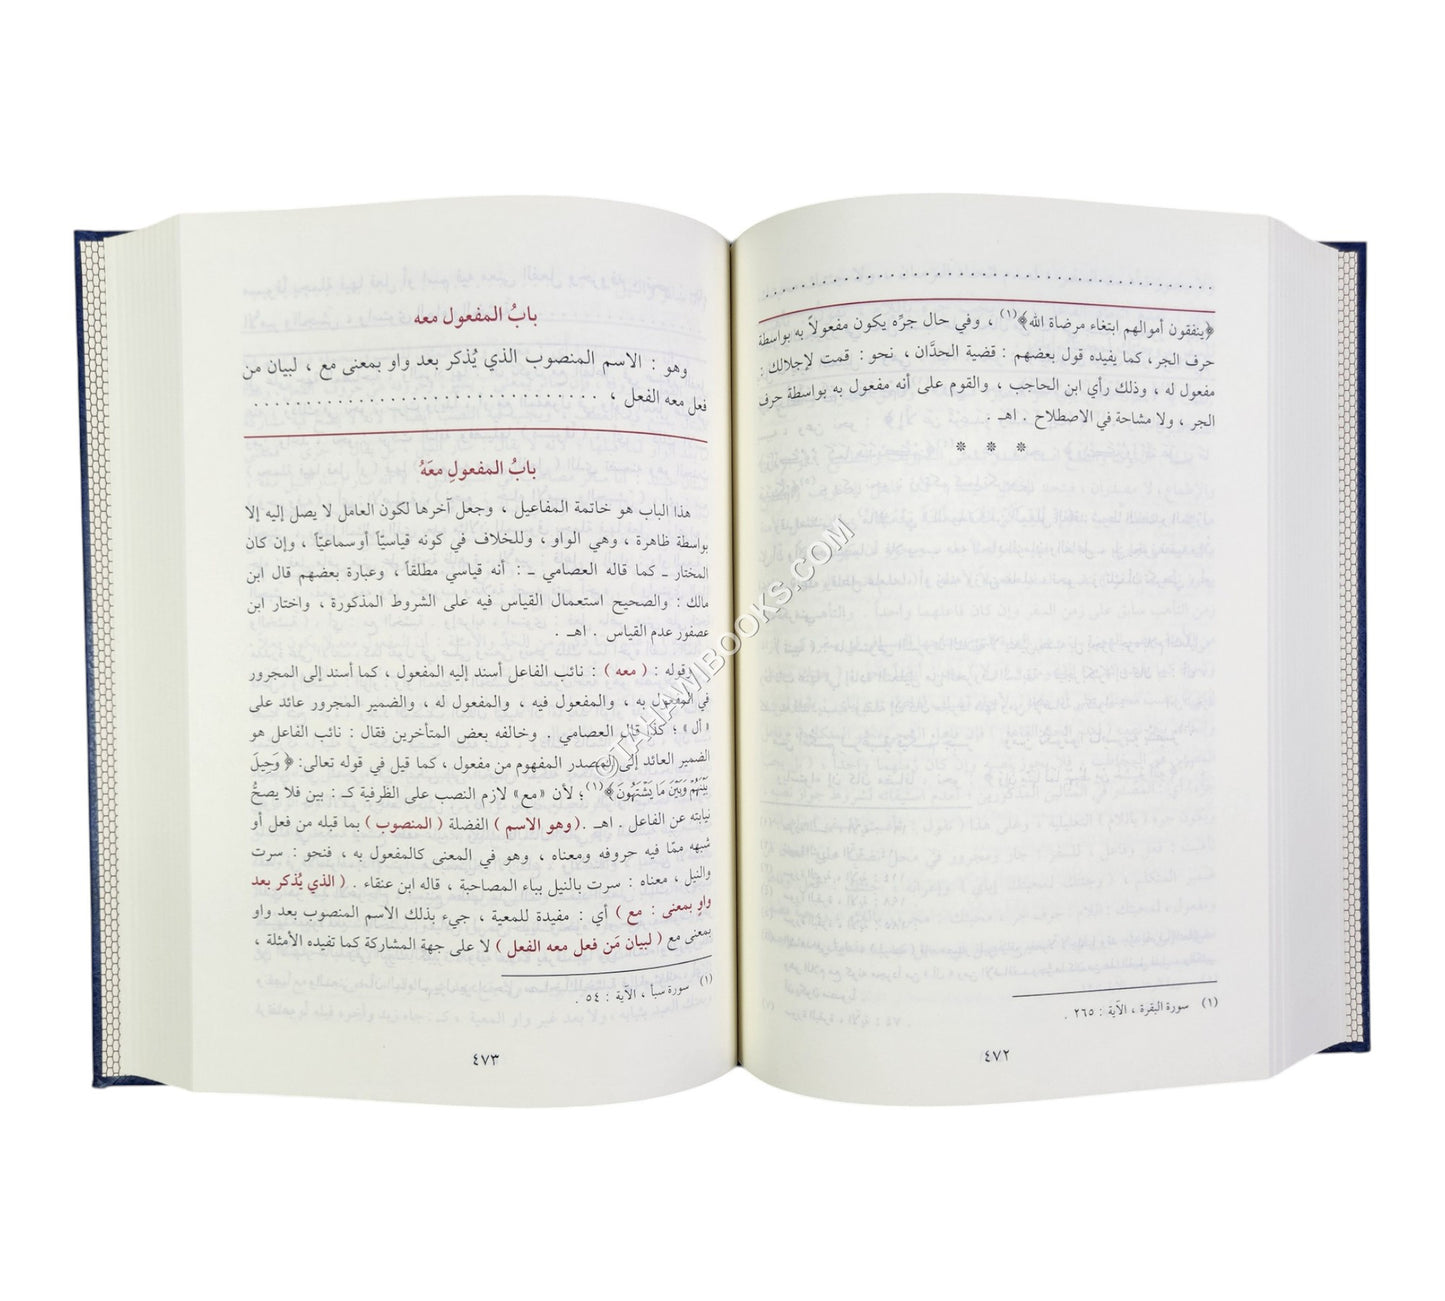 ﴿ينفقون أموالهم ابتغاء مرضاة الله﴾(١) ، وفي حال جرِّه يكون مفعولاً به بواسطة
حرف الجر، كما يفيده قول بعضهم : قضية الحدَّان ، نحو : قمت لإجلالك :
مفعول له ، وذلك رأي ابن الحاجب ، والقوم على أنه مفعول به بواسطة حرف
الجر ، ولا مشاحة في الاصطلاح . اهـ .
* * *
(١) سورة البقرة ، الآية : ٢٦٥ .
٤٧٢
بابُ المفعول معه
وهو : الاسم المنصوب الذي يُذكر بعد واو بمعنى مع ، لبيان من
فعل معه الفعل ،
بابُ المفعولِ معَهُ
هذا الباب هو خاتمة المفاعيل ، وجعل آخرها لكون العامل لا يصل إليه إلا
بواسطة ظاهرة ، وهي الواو ، وللخلاف في كونه قياسيّاً أوسماعيّاً ، وإن كان
المختار ـ كما قاله العصامي ـ : أنه قياسي مطلقاً ، وعبارة بعضهم قال ابن
مالك : والصحيح استعمال القياس فيه على الشروط المذكورة ، واختار ابن
عصفور عدم القياس . اهـ .
وقوله : ( معه ) : نائب الفاعل أسند إليه المفعول ، كما أسند إلى المجرور
في المفعول به ، والمفعول فيه ، والمفعول له ، والضمير المجرور عائد على
« أل » ؛ كذا قال العصامي . وخالفه بعض المتأخرين فقال : نائب الفاعل هو
الضمير العائد إلى المصدر المفهوم من مفعول ، كما قيل في قوله تعالى: ﴿ وَحِيلَ
بَيْنَهُمْ وَبَيْنَ مَا يَشْتَهُونَ﴾(١)؛ لأن «مع» لازم النصب على الظرفية كـ : بين فلا يصحُّ
نيابته عن الفاعل . اهـ .(وهو الاسم ) الفضلة ( المنصوب ) بما قبله من فعل أو
شبهه ممّا فيه حروفه ومعناه ، وهو في المعنى كالمفعول به ، فنحو : سرت
والنيل ، معناه : سرت بالنيل بباء المصاحبة ، قاله ابن عنقاء . ( الذي يُذكر بعد
واوٍ بمعنى : مع ) أي : مفيدة للمعية ، جيء بذلك الاسم المنصوب بعد واو
بمعنى مع ( لبيان مَن فعل معه الفعل ) لا على جهة المشاركة كما تفيده الأمثلة ،
(١) سورة سبأ ، الآية : ٥٤ .
٤٧٣
©TAHAWIBOOKS.COM